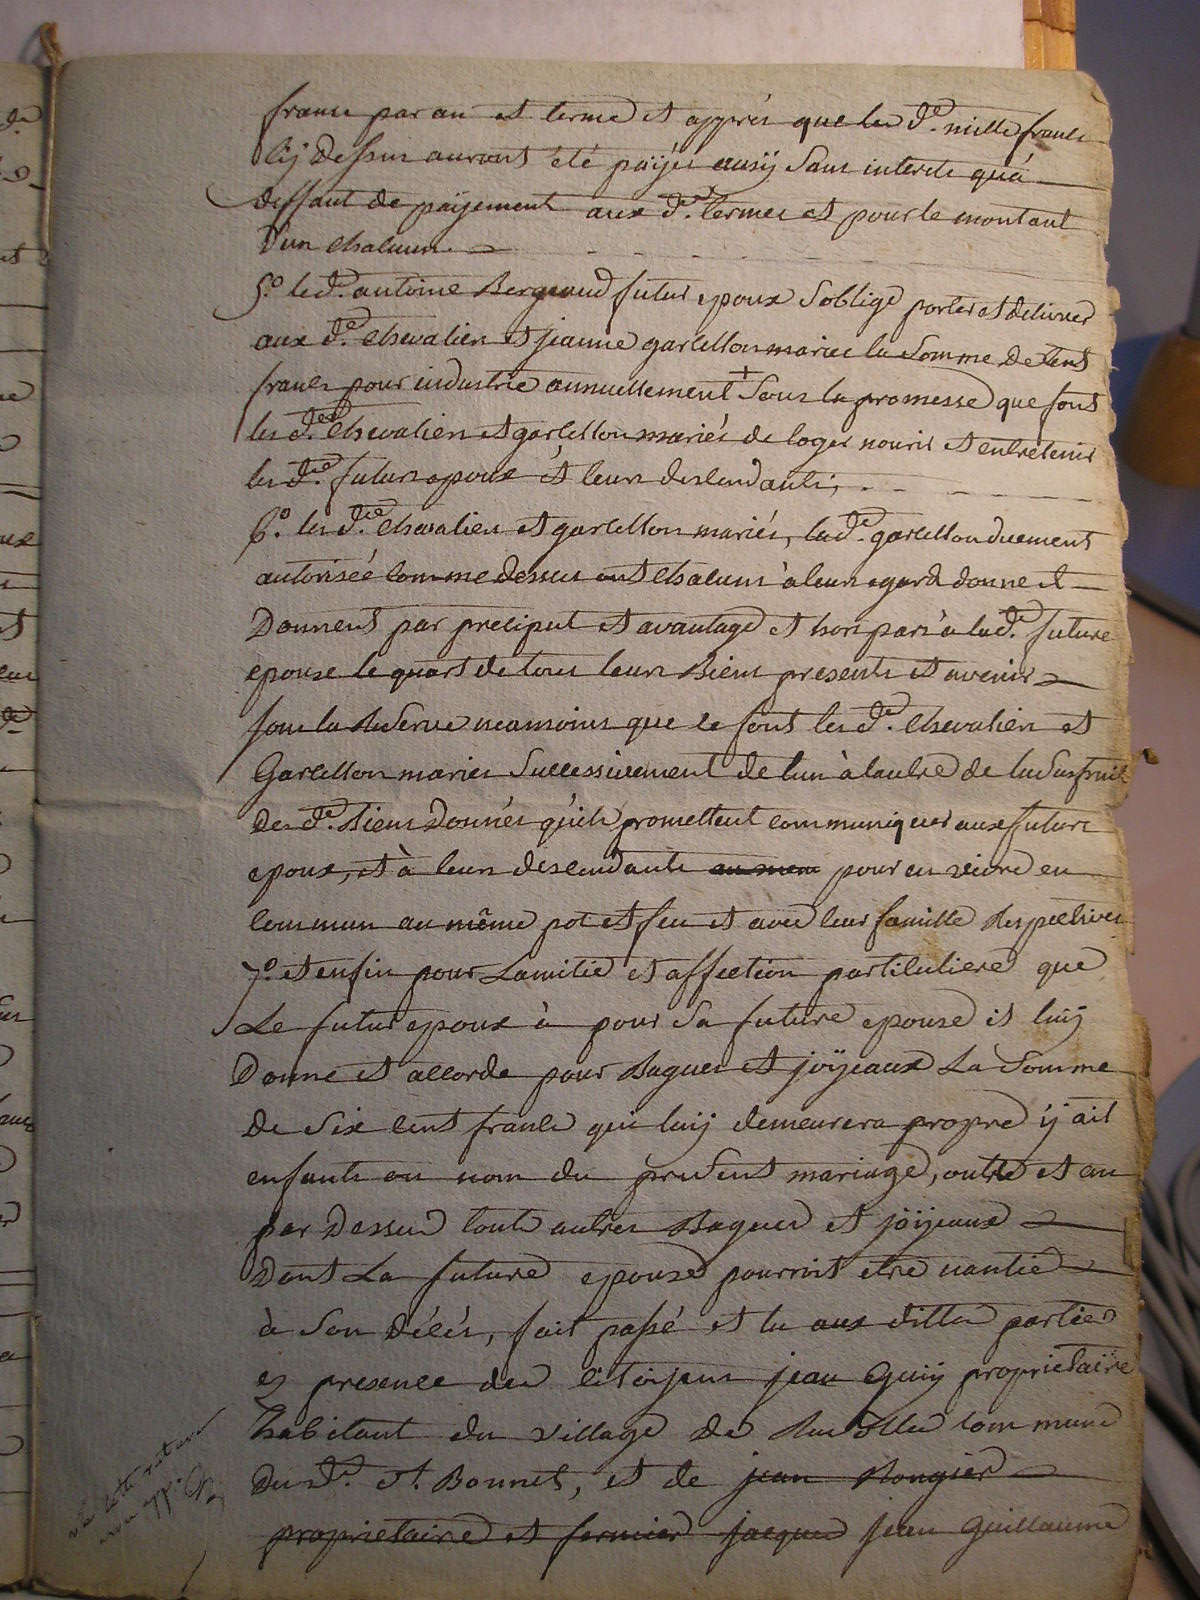 francs par an et terme et apprés que les d.e mille francs
cÿ dessus auront été païjés ausÿ sans interets qu'à
deffaut de païjement aux d.t termes et pour le montant
d'un chacun.
5.o le d.t antoine Bergeaud futur epoux s'oblige porter et delivrer
aux d.e chevalier et jeanne garcellon mariés la somme de cent
francs pour industrie annuellement + sous la promesse que font
les d.es chevalier et garcellon mariés de loger nourir et entretenir
les d.es futurs epoux et leurs descendants;
6.o les d.es chevalier et garcellon mariés, la d.e garcellon duement
autorisée comme dessus ont chacuns à leur egard donné et
Donnent par preciput et avantage et hors part à la d.e future
epouse le quart de tous leurs Biens presents et avenir
sous la Reserve neamoins que se font les d.e chevalier et
Garcellon mariés successivement de l'un à lautre de lusufruit
des d.e Biens Donnés qu'ils promettent communiquer aux futurs
epoux, et à leurs descendants pour en vivre en
commun au même pot et feu et avec leur famille Respectives
7.o et enfin pour Lamitié et affection particuliere que
Le futur epoux à pour sa future epouse il luÿ
Donne et accorde pour Bagues et joÿeaux La somme
de six cent francs qui luÿ demeurera propre ÿ ait
enfants ou nom du present mariage, outre et au
par Dessus touts autres Bagues et joÿeaux
Dont La future epouse pourroit etre nantie
à son décés, fait passé et lu aux dittes parties
en presence des citoÿens jean Guÿ proprietaire
habitant du village de commune
du d.t St. Bonnet, et de jean Rongier
proprietaire et fermier jacques jean Guillaume